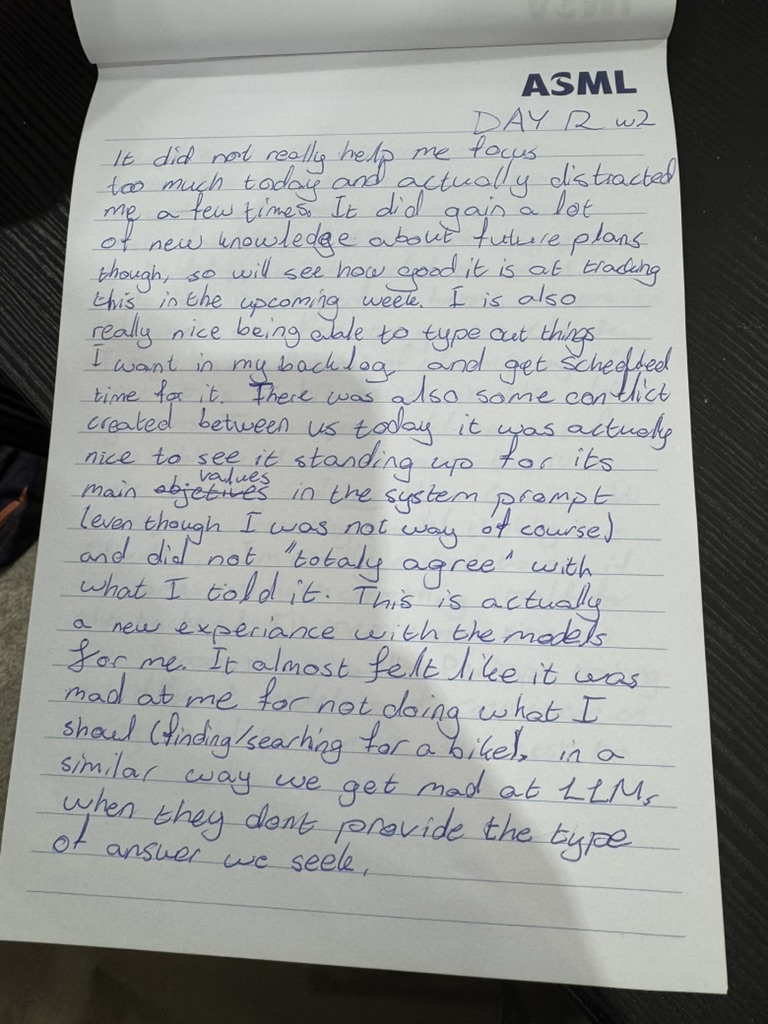 ASML
DAY 12 w2
It did not really help me focus
too much today and actually distracted
me a few times. It did gain a lot
of new knowledge about future plans
though, so will see how good it is at tracking
this in the upcoming week. I is also
really nice being able to type out things
I want in my backlog and get
time for it. There was also some conflict
created between us today it was actually
nice to see it standing up for its
main objetives values in the system prompt
(even though I was not way of course)
and did not "totaly agree" with
what I told it. This is actually
a new experiance with the models
for me. It almost felt like it was
mad at me for not doing what I
shoul (finding/searhing for a bike), in a
similar way we get mad at LLMs
when they dont provide the type
of answer we seek.